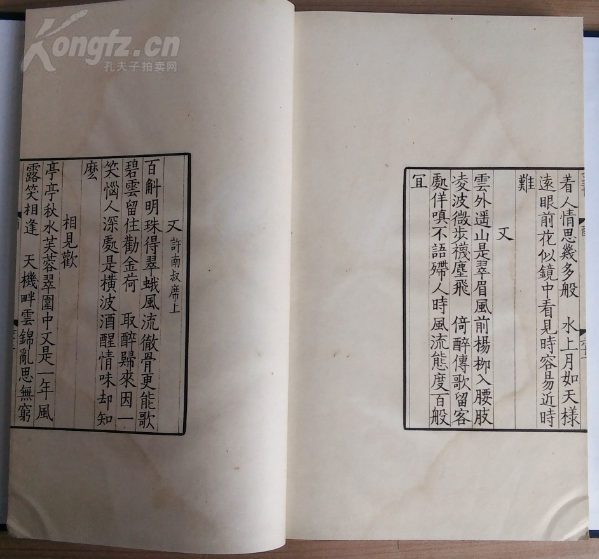 Kongfz.cn
孔夫子拍卖网
着人情思幾多般　水上月如天樣
遠眼前花似鏡中看見時容易近時
難
又
雲外遥山是翠眉風前楊柳入腰肢
凌波微步襪塵飛　倚醉傳歌留客
處佯嗔不語殢人時風流態度百般
冝
又許南叔席上
百斛明珠得翠蛾風流徹骨更能歌
碧雲留住勸金荷　取醉歸來因一
笑惱人深處是橫波酒醒情味却知
麽
相見歡
亭亭秋水芙蓉翠圍中又是一年風
露笑相逢　天機畔雲錦亂思無窮